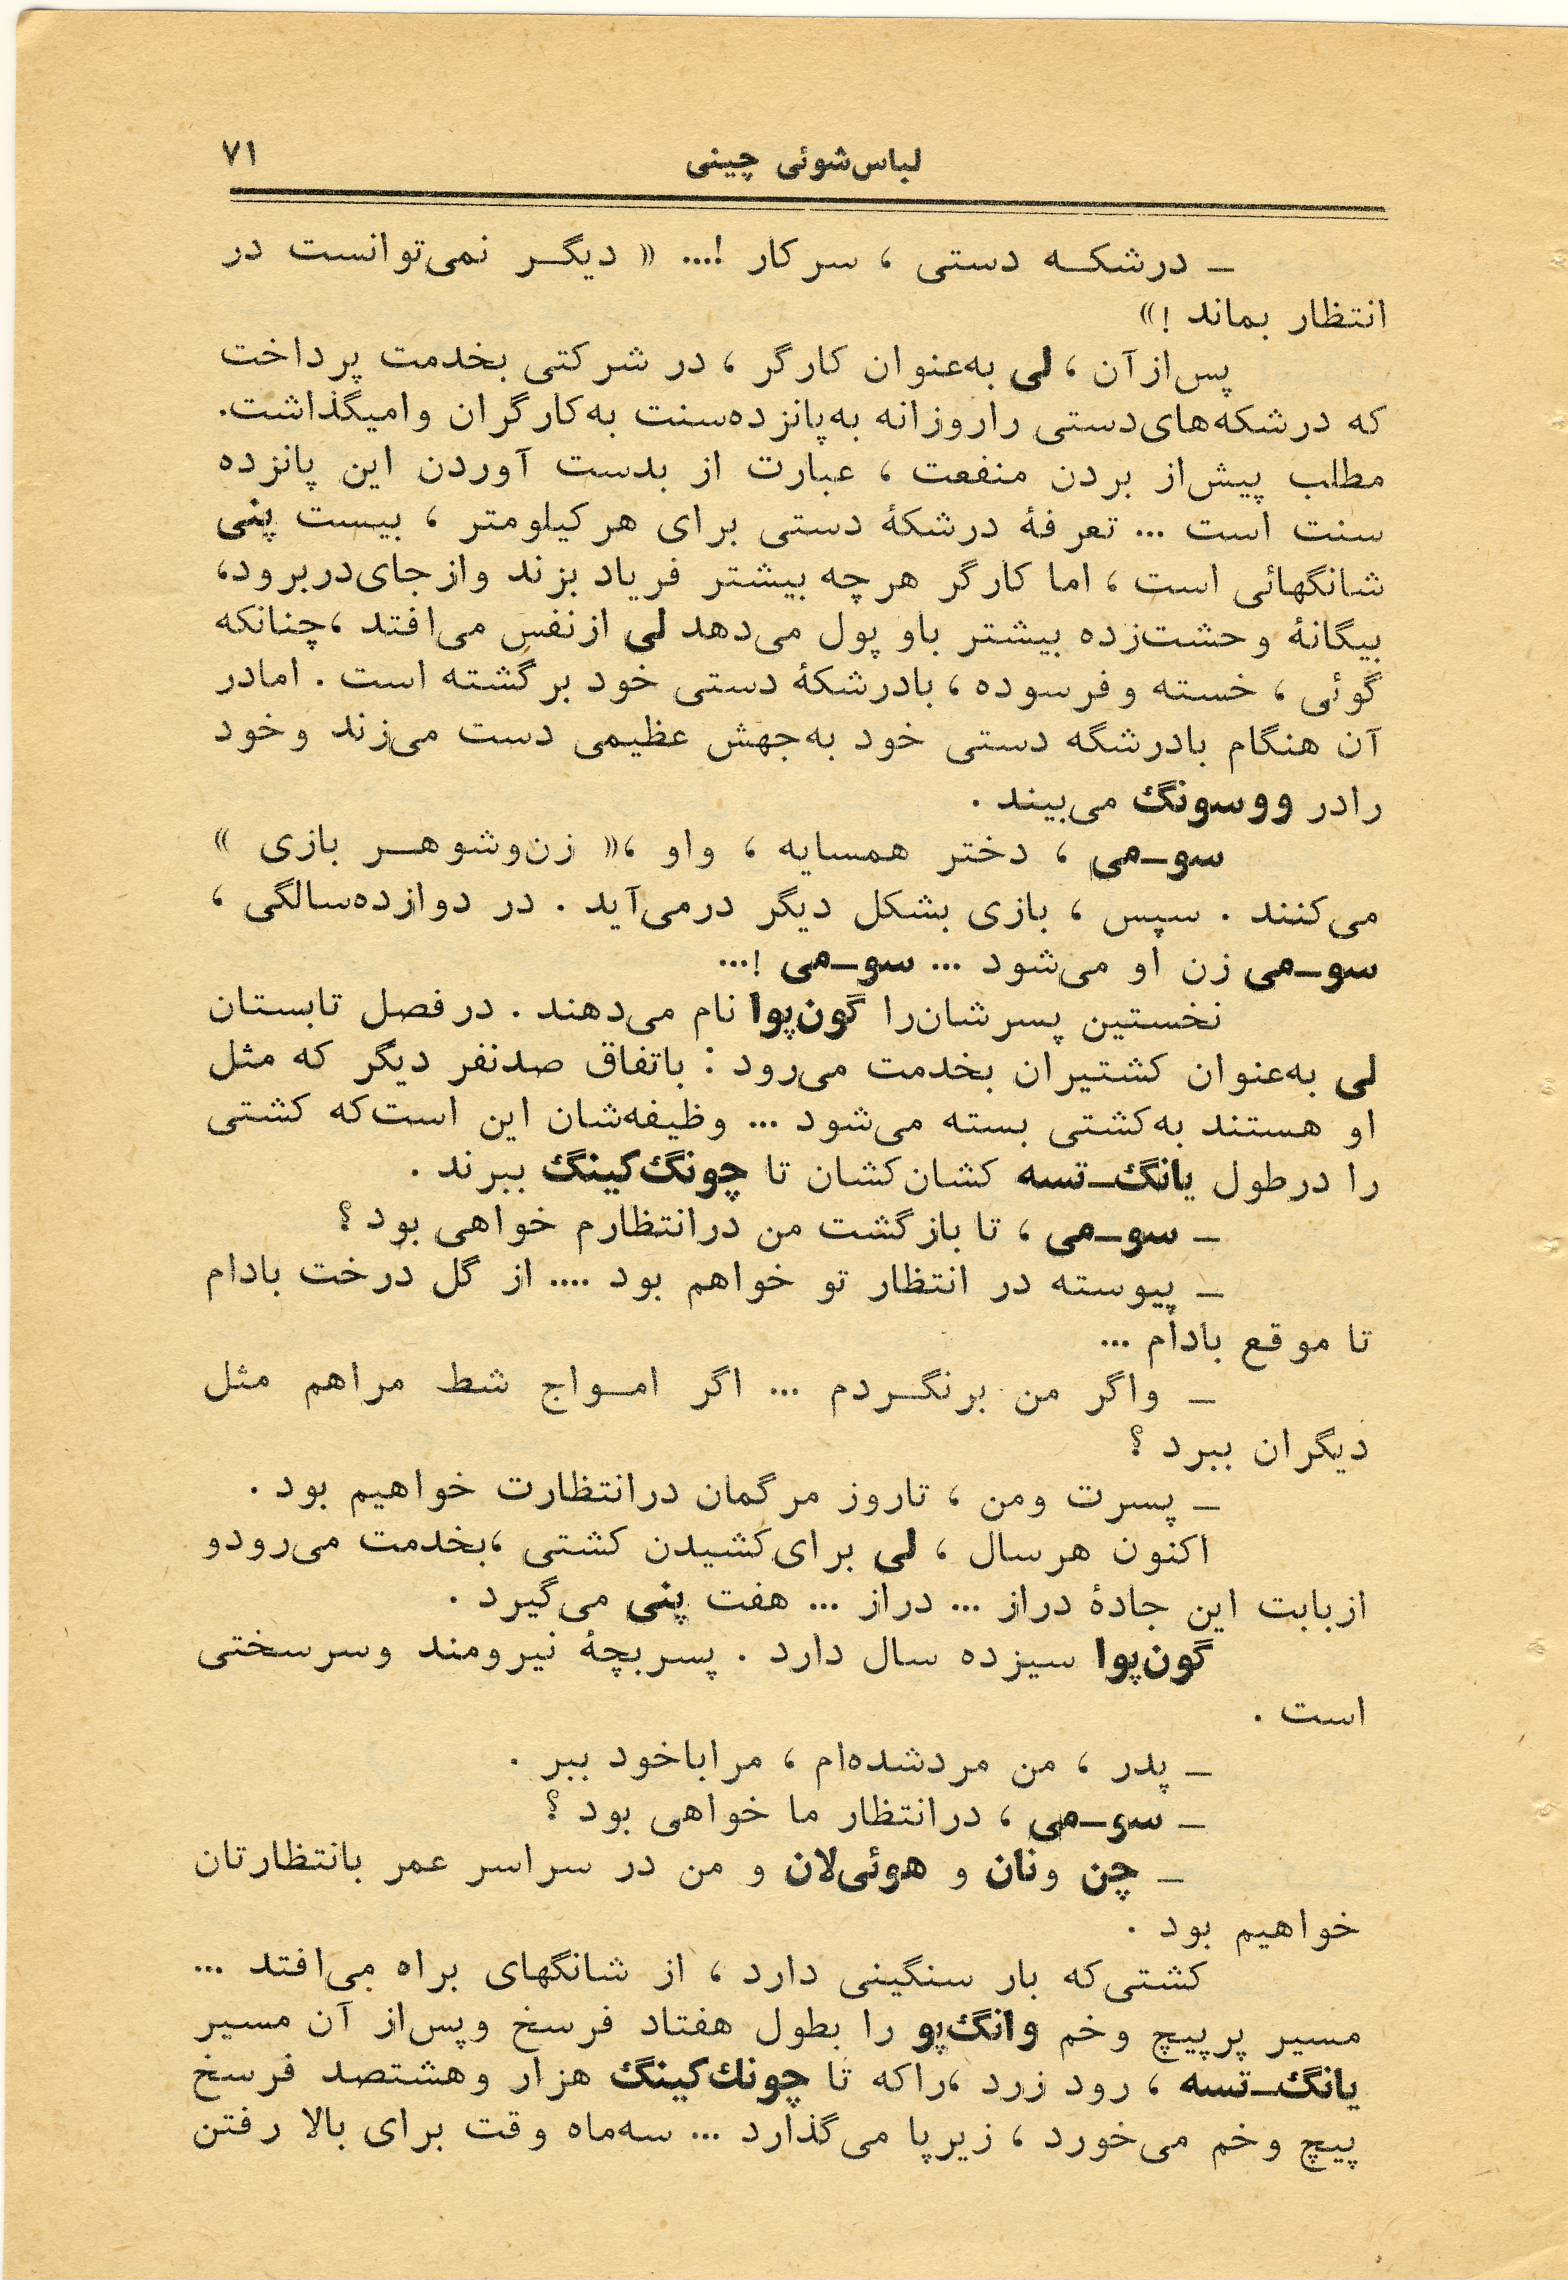 لباس‌شوئی چینی ۷۱
ــ درشکــه دستی ، سرکار !... « دیگــر نمی‌توانست در
انتظار بماند !»
پس‌ازآن ، لی به‌عنوان کارگر ، در شرکتی بخدمت پرداخت
که درشکه‌های‌دستی را روزانه به‌پانزده‌سنت به‌کارگران وامیگذاشت.
مطلب پیش‌از بردن منفعت ، عبارت از بدست آوردن این پانزده
سنت است ... تعرفهٔ درشکهٔ دستی برای هرکیلومتر ، بیست پنی
شانگهائی است ، اما کارگر هرچه بیشتر فریاد بزند وازجای‌دربرود،
بیگانهٔ وحشت‌زده بیشتر باو پول می‌دهد لی ازنفس می‌افتد ،چنانکه
گوئی ، خسته وفرسوده ، بادرشکهٔ دستی خود برگشته است . امادر
آن هنگام بادرشگه دستی خود به‌جهش عظیمی دست می‌زند وخود
رادر ووسونگ می‌بیند .
سوــمی ، دختر همسایه ، واو ،« زن‌وشوهــر بازی »
می‌کنند . سپس ، بازی بشکل دیگر درمی‌آید . در دوازده‌سالگی ،
سوــمی زن او می‌شود ... سوــمی !...
نخستین پسرشان‌را گون‌پوا نام می‌دهند . درفصل تابستان
لی به‌عنوان کشتیران بخدمت می‌رود : باتفاق صدنفر دیگر که مثل
او هستند به‌کشتی بسته می‌شود ... وظیفه‌شان این است‌که کشتی
را درطول یانگ‌ــتسه کشان‌کشان تا چونگ‌کینگ ببرند .
ــ سوــمی ، تا بازگشت من درانتظارم خواهی بود ؟
ــ پیوسته در انتظار تو خواهم بود .... از گل درخت بادام
تا موقع بادام ...
ــ واگر من برنگــردم ... اگر امــواج شط مراهم مثل
دیگران ببرد ؟
ــ پسرت ومن ، تاروز مرگمان درانتظارت خواهیم بود .
اکنون هرسال ، لی برای‌کشیدن کشتی ،بخدمت می‌رودو
ازبابت این جادهٔ دراز ... دراز ... هفت پنی می‌گیرد .
گون‌پوا سیزده سال دارد . پسربچهٔ نیرومند وسرسختی
است .
ــ پدر ، من مردشده‌ام ، مراباخود ببر .
ــ سوــمی ، درانتظار ما خواهی بود ؟
ــ چن ونان و هوئی‌لان و من در سراسر عمر بانتظارتان
خواهیم بود .
کشتی‌که بار سنگینی دارد ، از شانگهای براه می‌افتد ...
مسیر پرپیچ وخم وانگ‌پو را بطول هفتاد فرسخ وپس‌از آن مسیر
یانگ‌ــتسه ، رود زرد ،راکه تا چونك‌کینگ هزار وهشتصد فرسخ
پیچ وخم می‌خورد ، زیرپا می‌گذارد ... سه‌ماه وقت برای بالا رفتن